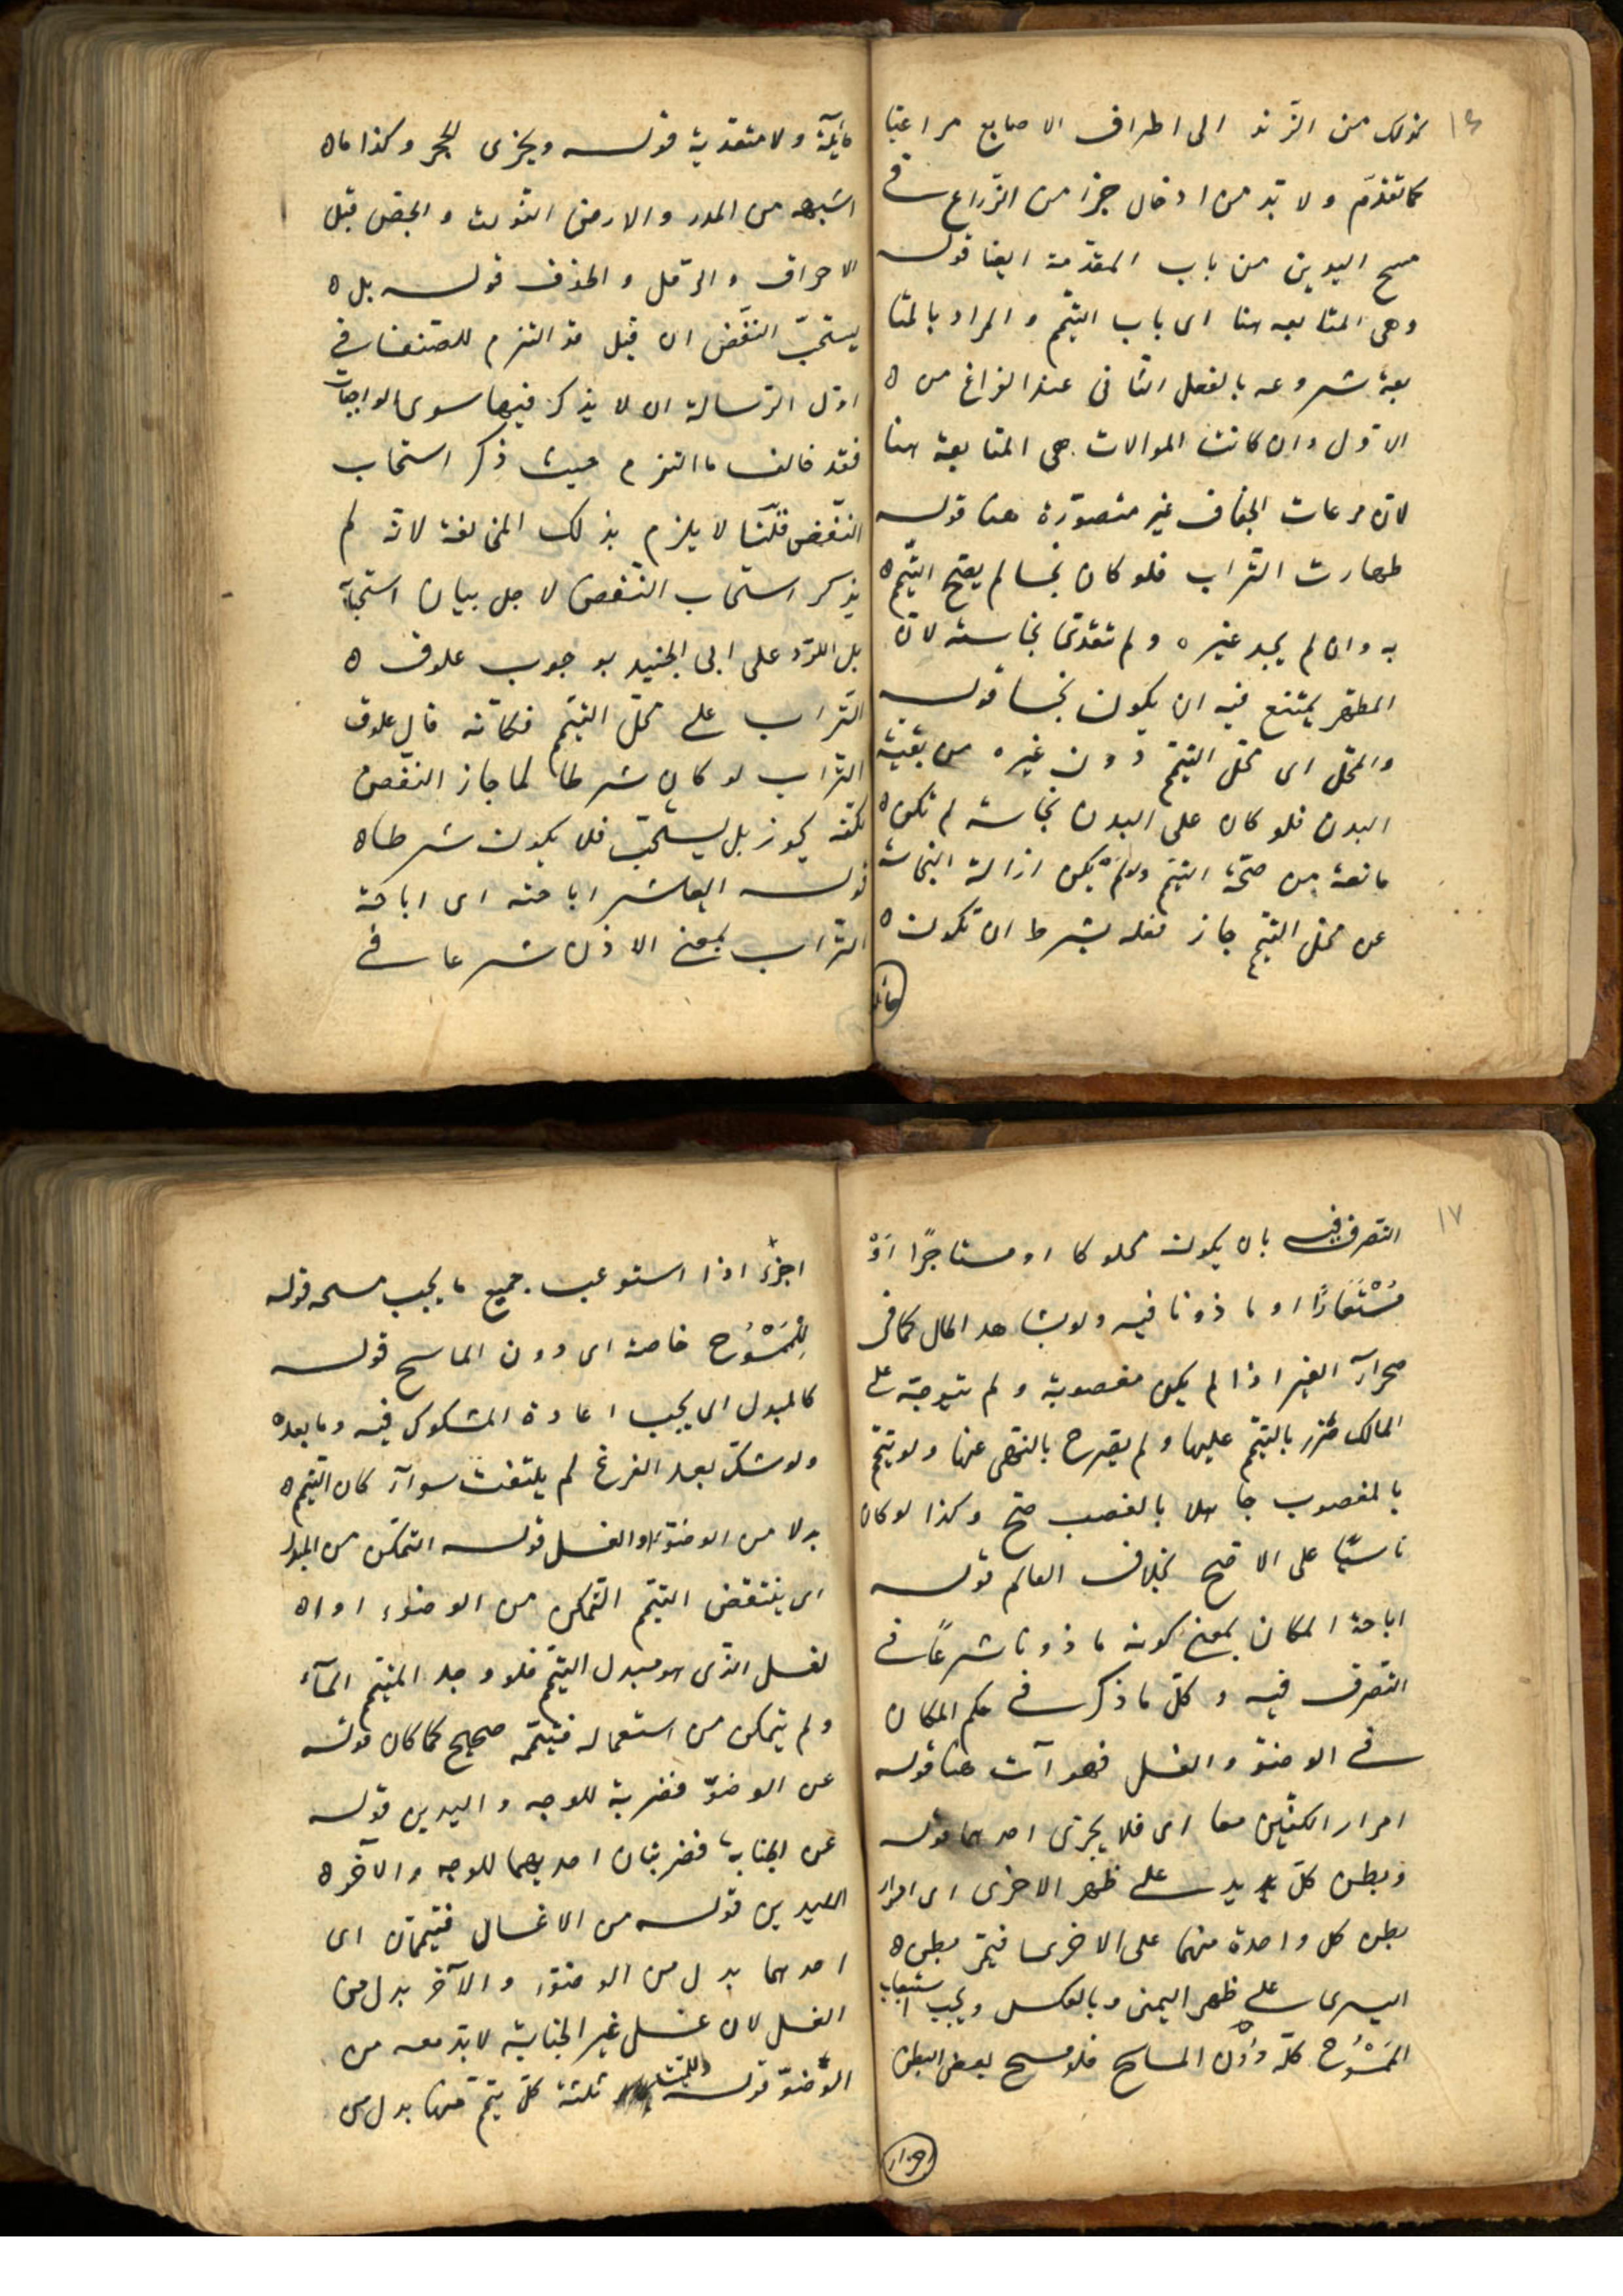 ١٦
كذلك من الزند الى اطراف الاصابع مراعيا
كما تقدّم ولا بدّ من ادخال جزا من الذراع فى
مسح اليدين من باب المقدّمة ايضا قوله
وهى المتابعه هنا اى باب التيمّم والمراد بالمتا
بعة شروعه بالفعل الثانى عند الفراغ من ه
الاوّل وان كانت الموالات هى المتابعة هنا
لانّ مرعات الجفاف غير متصوّرة هنا قوله
طهارت التّراب فلو كان نجسا لم يصحّ التيمّم ه
به وان لم يجد غيره ولم تتعدّى نجاسته لانّ
المطهّر يمتنع فيه ان يكون نجسا قوله
والمحلّ اى محلّ التيمّم دون غيره من بقيّة
البدن فلو كان على البدن نجاسة لم تكن ه
مانعة من صحّة التيمّم ولو لم يكن ازالة النجاسة
عن محلّ التيمّم جاز فعله بشرط ان تكون ه
حائلـ
حائيّة ولا متعدّية قوله ويجزى الحجر وكذا ما ه
اشبهه من المدر والارض النّورت والجصّ قبل
الاحراق والرّمل والخذف قوله بل ه
يستحبّ النّفض ان قيل قد التزم المصنف فى
اوّل الرّسالة ان لا يذكر فيها سوى الواجبات
فقد خالف ما التزم حيث ذكر استحباب
النّفض قلنا لا يلزم بذلك المخالفة لانّه لم
يذكر استحباب النّفض لاجل بيان استحبابه
بل للرّد على ابى الجنيد بوجوب علوق ه
التّراب على محلّ التيمّم فكانّه قال علوق
التّراب لو كان شرطا لما جاز النّفض
لكنّه يجوز بل يستحبّ فلا يكون شرطا ه
قوله العاشر اباحته اى اباحة
التّراب بمعنى الاذن شرعا فى
١٧
التصرف فيه بان يكون مملوكا او مستاجرًا اوْ
مُسْتَعَارًا او ماذونا فيه ولو بشاهد الحال كما فى
صحراء الغير اذا لم يكن مغصوبة ولم يتوجّه على
المالك ضرر بالتيمّم عليها ولم يصرح بالنّهى عنها ولو تيمّم
بالمغصوب جاهلا بالغصب صحّ وكذا لو كان
ناسيًا على الاصّح بخلاف العالم قوله
اباحة المكان بمعنى كونه ماذونا شرعًا فى
التصرف فيه وكلّ ما ذكر فى حكم المكان
فى الوضوّ والغسل فهو آت هنا قوله
امرار الكفين معا اى فلا يجزى احدهما قوله
وبطن كلّ يد على ظهر الاخرى اى امرار
بطن كل واحدة منهما على الاخرى فيمّر بطن ه
اليسرى على ظهر اليمنى وبالعكس ويجب استيعاب
المَمْسُوْح كلّه دُوْن الماسح فلو مسح ببعض البطن
اجزاء
اجزء اذا استوعب جميع ما يجب مسحه قوله
لِلْمَمْسُوْح خاصة اى دون الماسح قوله
كالمبدل اى يجب اعادة المشكوك فيه وما بعده
ولو شكّ بعد الفرغ لم يلتفت سوآء كان التيمّم ه
بدلا من الوضوّء او الغسل قوله التمكّن من المبدل
اى ينتقض التيمّم التّمكن من الوضوء او ا ه
لغسل الذى هو مبدل التيمّم فلو وجد المتيمّم المآء
ولم يتمكن من استعماله فتيمّمه صحيح كما كان قوله
عن الوضوّ فضربة للوجه واليدين قوله
عن الجنابة فضربتان احديهما للوجه والآخر ه
لليدين قوله من الاغسال فتيمّمان اى
احدهما بدل من الوضوّء والآخر بدل من
الغسل لان غسل غير الجنابة لا بدّ معه من
الوّضوّ قوله وللميّت ثلثة كلّ تيمّم منها بدل من